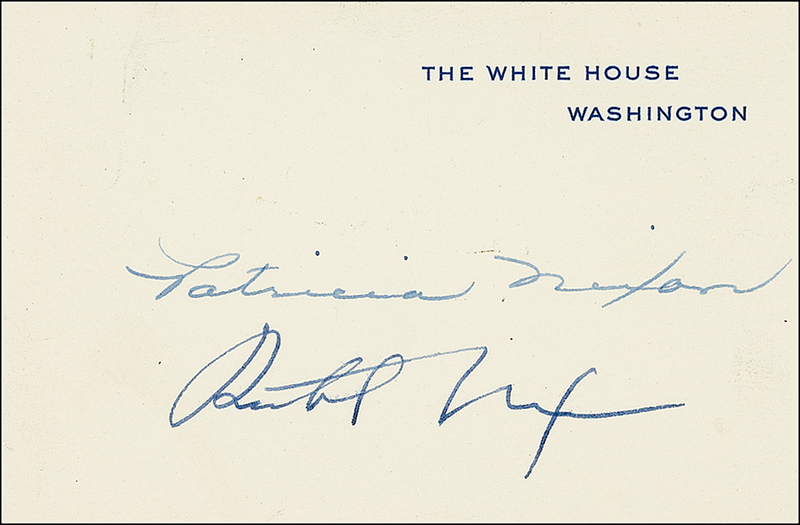 THE WHITE HOUSE
WASHINGTON
Patricia Nixon
Richard Nixon